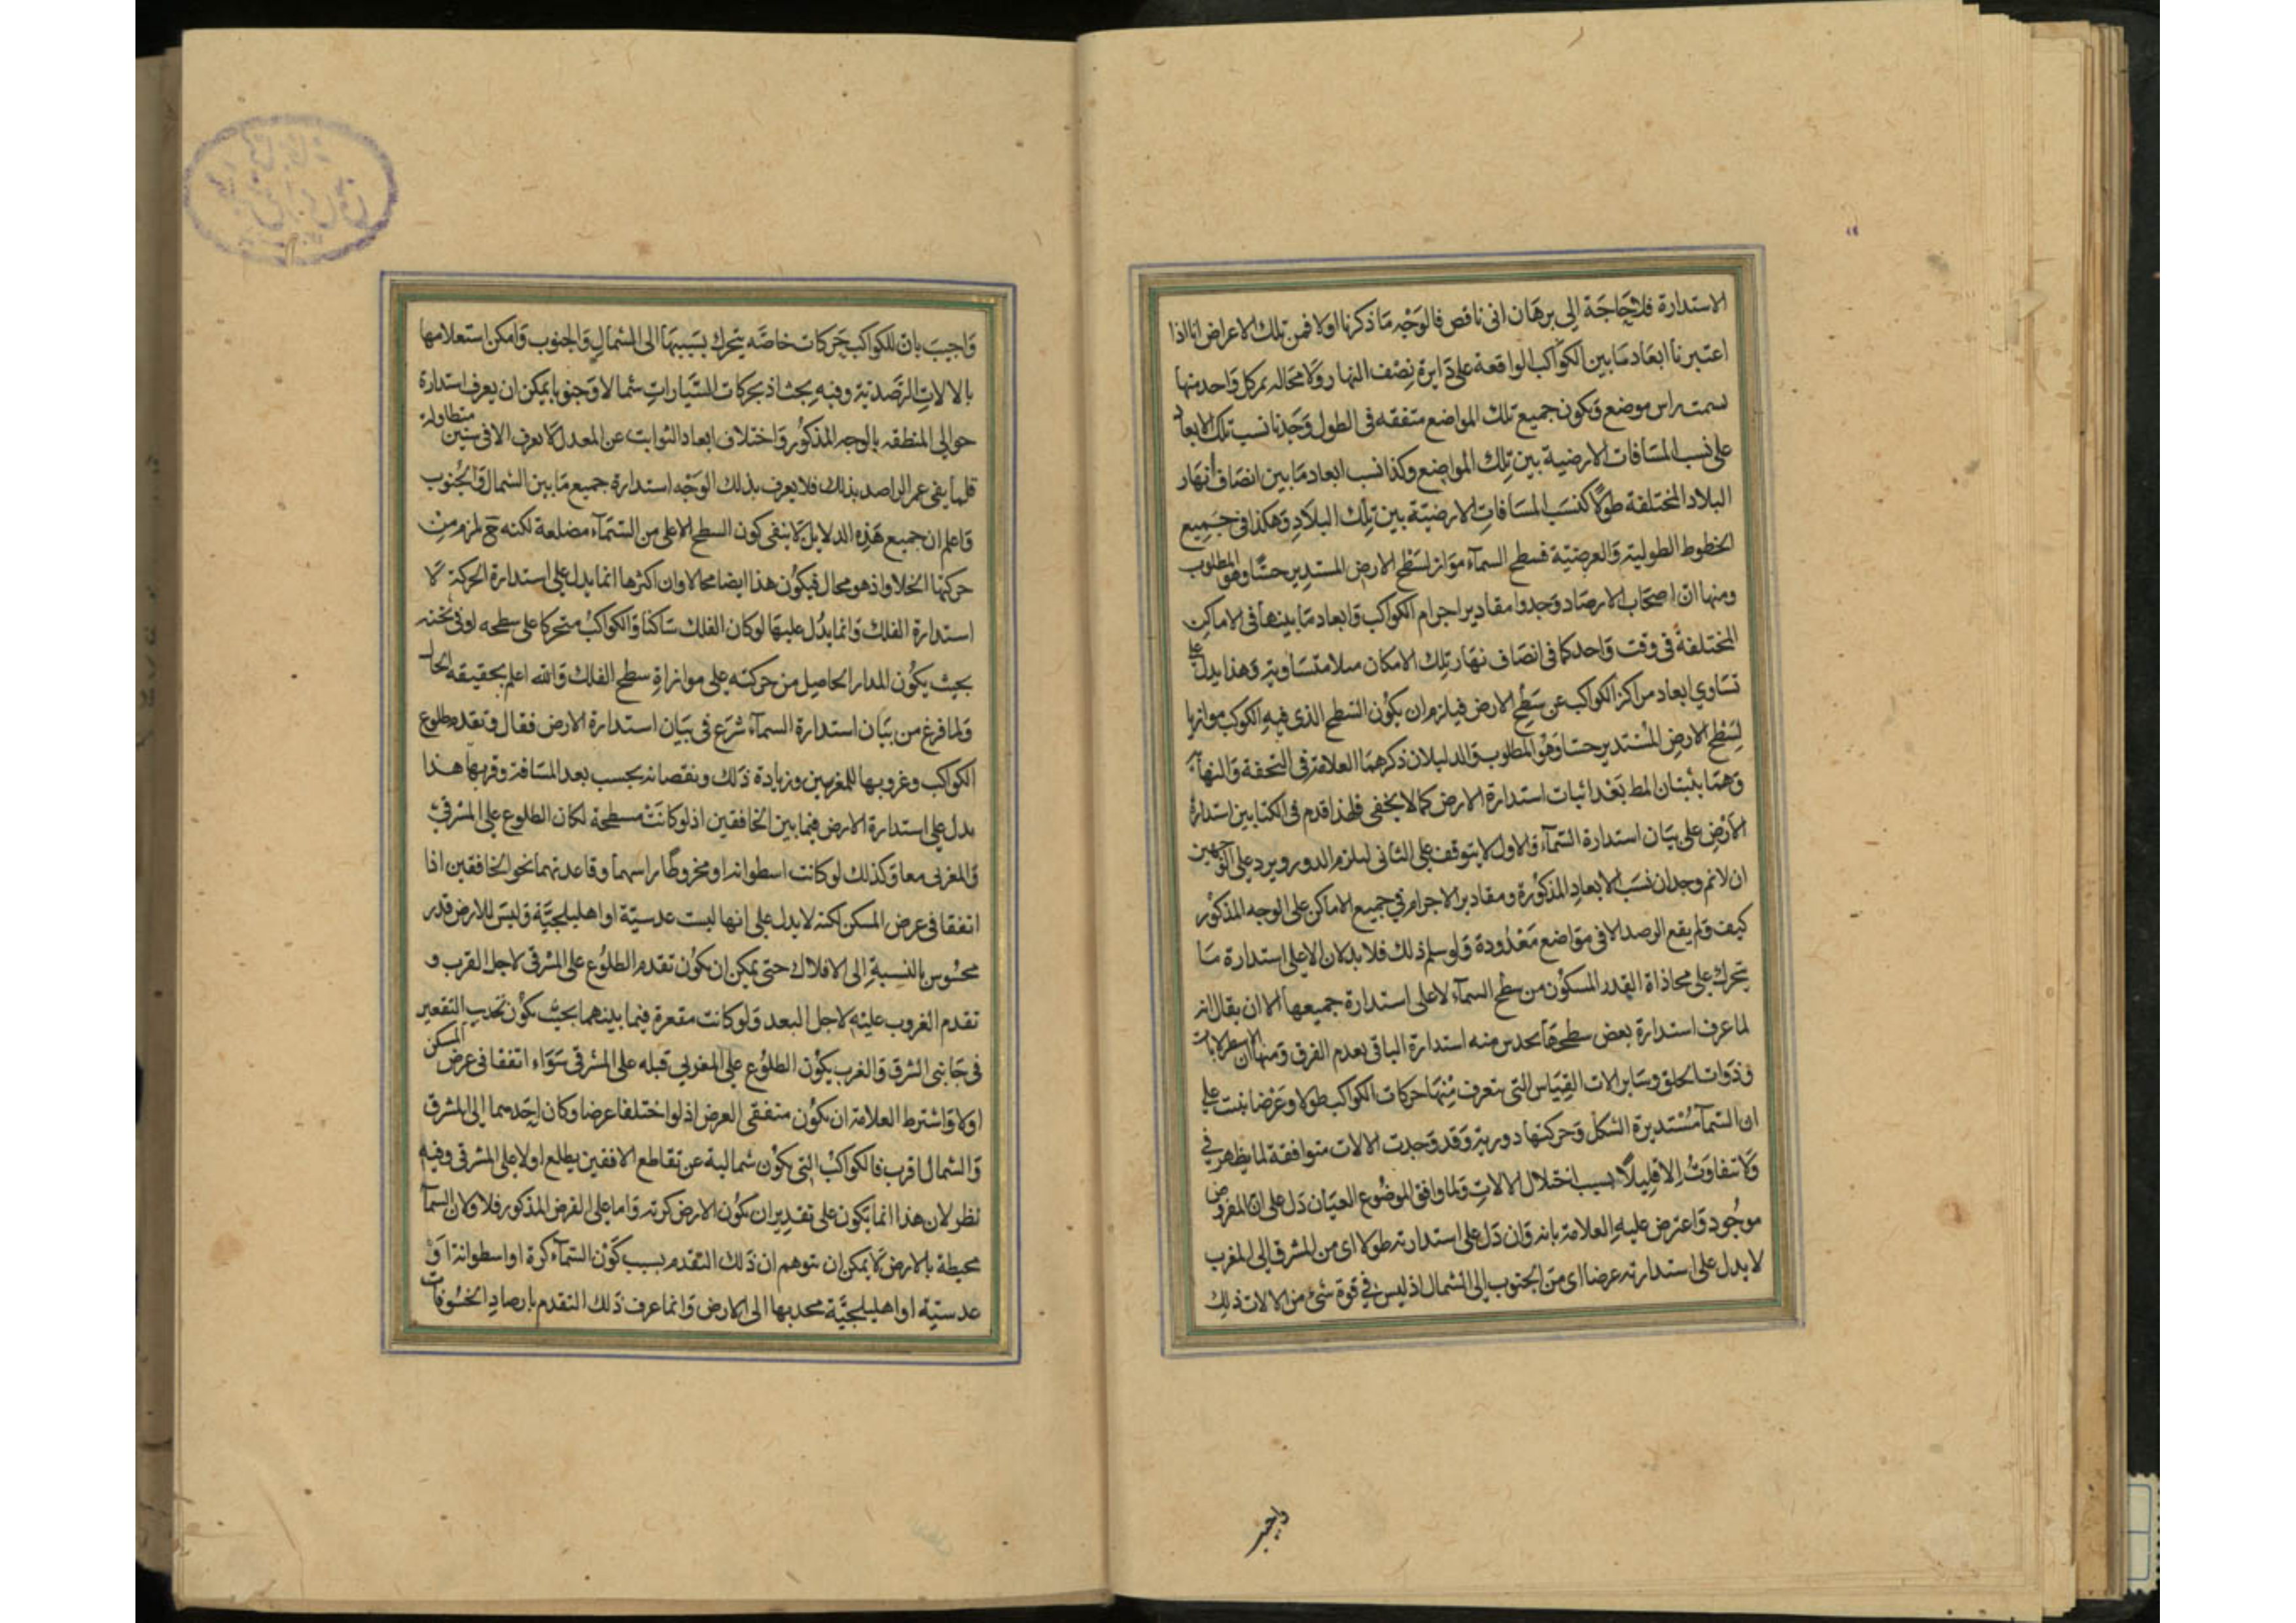 الاستدارة فلا حاجة الى برهان انى ناقص فالوجه ما ذكرنا اولا فمن تلك الاعراض انا اذا
اعتبرنا ابعاد ما بين الكواكب الواقعة على دايرة نصف النهار ولا محاله يمر كل واحد منها
بسمت راس موضع وتكون جميع تلك المواضع متفقه فى الطول وجدنا نسب تلك الابعاد
على نسب المسافات الارضية بين تلك المواضع وكذا نسب ابعاد ما بين انصاف انهار
البلاد المختلفة طولا كنسب المسافات الارضيّة بين تلك البلاد وهكذا فى جميع
الخطوط الطولية والعرضيّة فسطح السمآء مواز لسطح الارض المستدير حسّا وهو المطلوب
ومنها ان اصحاب الارصاد وجدوا مقادير اجرام الكواكب وابعاد ما بينها فى الاماكن
المختلفة فى وقت واحد كما فى انصاف نهار تلك الامكان مثلا متساوية وهذا يدل على
تساوي ابعاد مراكز الكواكب عن سطح الارض فيلزم ان يكون السطح الذى فيه الكوكب موازيا
لسطح الارض المستدير حسا وهو المطلوب والدليلان ذكرهما العلامة فى التحفة والنهاية
وهما يثبتان المط بعد اثبات استدارة الارض كما لا يخفى فلهذا قدم فى الكتابين استدارة
الارض على بيان استدارة السمآء والاول لا يتوقف على الثانى ليلزم الدور ويرد على الوجهين
ان لا نم وجدان نسب الابعاد المذكورة ومقادير الاجرام في جميع الاماكن على الوجه المذكور
كيف ولم يقع الرصد الا فى مواضع معدودة ولو سلم ذلك فلا يدلان الا على استدارة ما
يتحرك على محاذاة القدر المسكون من سطح السمآء لا على استدارة جميعها الا ان يقال انه
لما عرف استدارة بعض سطحها يحدس منه استدارة الباقى بعدم الفرق ومنها ان الاسطرلابات
وذوات الحلق وساير الات القياس التى يتعرف منها حركات الكواكب طولا وعرضا بنيت على
ان السمآ مستديرة الشكل وحركتها دورية وقد وجدت الالات متوافقة لما يظهر في
ولا تتفاوت الا قليلا بسبب اختلال الالات ولما وافق الموضوع العيان دل على ان المفروض
موجود واعترض عليه العلامة بانه وان دل على استدارته طولا اى من المشرق الى المغرب
لا يدل على استدارته عرضا اى من الجنوب الى الشمال اذ ليس في قوة شئ من الالات ذلك
واجيب
واجيب بان للكواكب حركات خاصّه يتحرك بسببها الى الشمال والجنوب وامكن استعلامها
بالالات الرصديّة وفيه بحث اذ بحركات السيّارات شمالا وجنوبا يمكن ان يعرف استدارة
حوالى المنطقه بالوجه المذكور واختلاف ابعاد الثوابت عن المعدل لا يعرف الا فى سنين متطاولة
قلما يفى عمر الراصد بذلك فلا يعرف بذلك الوجه استدارة جميع ما بين الشمال والجنوب
واعلم ان جميع هذه الدلايل لا ينفى كون السطح الاعلى من السمآء مضلعة لكنه ح يلزم من
حركتها الخلا واذ هو محال فيكون هذا ايضا محالا وان اكثرها انما يدل على استدارة الحركة لا
استدارة الفلك وانما يدل عليها لو كان الفلك ساكنا والكواكب متحركا على سطحه او فى ثخنه
بحيث يكون المدار الحاصل من حركته على موازاة سطح الفلك والله اعلم بحقيقه الحال
ولما فرغ من بيان استدارة السمآء شرع فى بيان استدارة الارض فقال وتقدم طلوع
الكواكب وغروبها للمغربين وزيادة ذلك ونقصانه بحسب بعد المسافة وقربها هذا
يدل على استدارة الارض فيما بين الخافقين اذ لو كانت مسطحة لكان الطلوع على المشرقى
والمغربى معا وكذلك لو كانت اسطوانة او مخروطا راسهما وقاعدتهما نحو الخافقين اذا
اتفقا فى عرض المسكن لكنه لا يدل على انها ليست عدسيّة او اهليلجيّة وليس للارض قدر
محسوس بالنسبة الى الافلاك حتى يمكن ان يكون تقدم الطلوع على المشرقى لاجل القرب و
تقدم الغروب عليه لاجل البعد ولو كانت مقعرة فيما بينهما بحيث يكون تحديب التقعير
فى جانبى الشرق والغرب يكون الطلوع على المغربي قبله على المشرقى سواء اتفقا فى عرض المسكن
اولا واشترط العلامة ان يكون متفقى العرض اذ لو اختلفا عرضا وكان احدهما الى المشرق
والشمال اقرب فالكواكب التى يكون شمالية عن تقاطع الافقين يطلع اولا على المشرقى وفيه
نظر لان هذا انما يكون على تقدير ان يكون الارض كرته واما على الفرض المذكور فلا ولان السمآ
محيطة بالارض لا يمكن ان يتوهم ان ذلك التقدم بسبب كون السمآء كرة او اسطوانة او
عدسيّه او اهليلجيّة محدبها الى الارض وانما عرف ذلك التقدم بارصاد الخسوفات